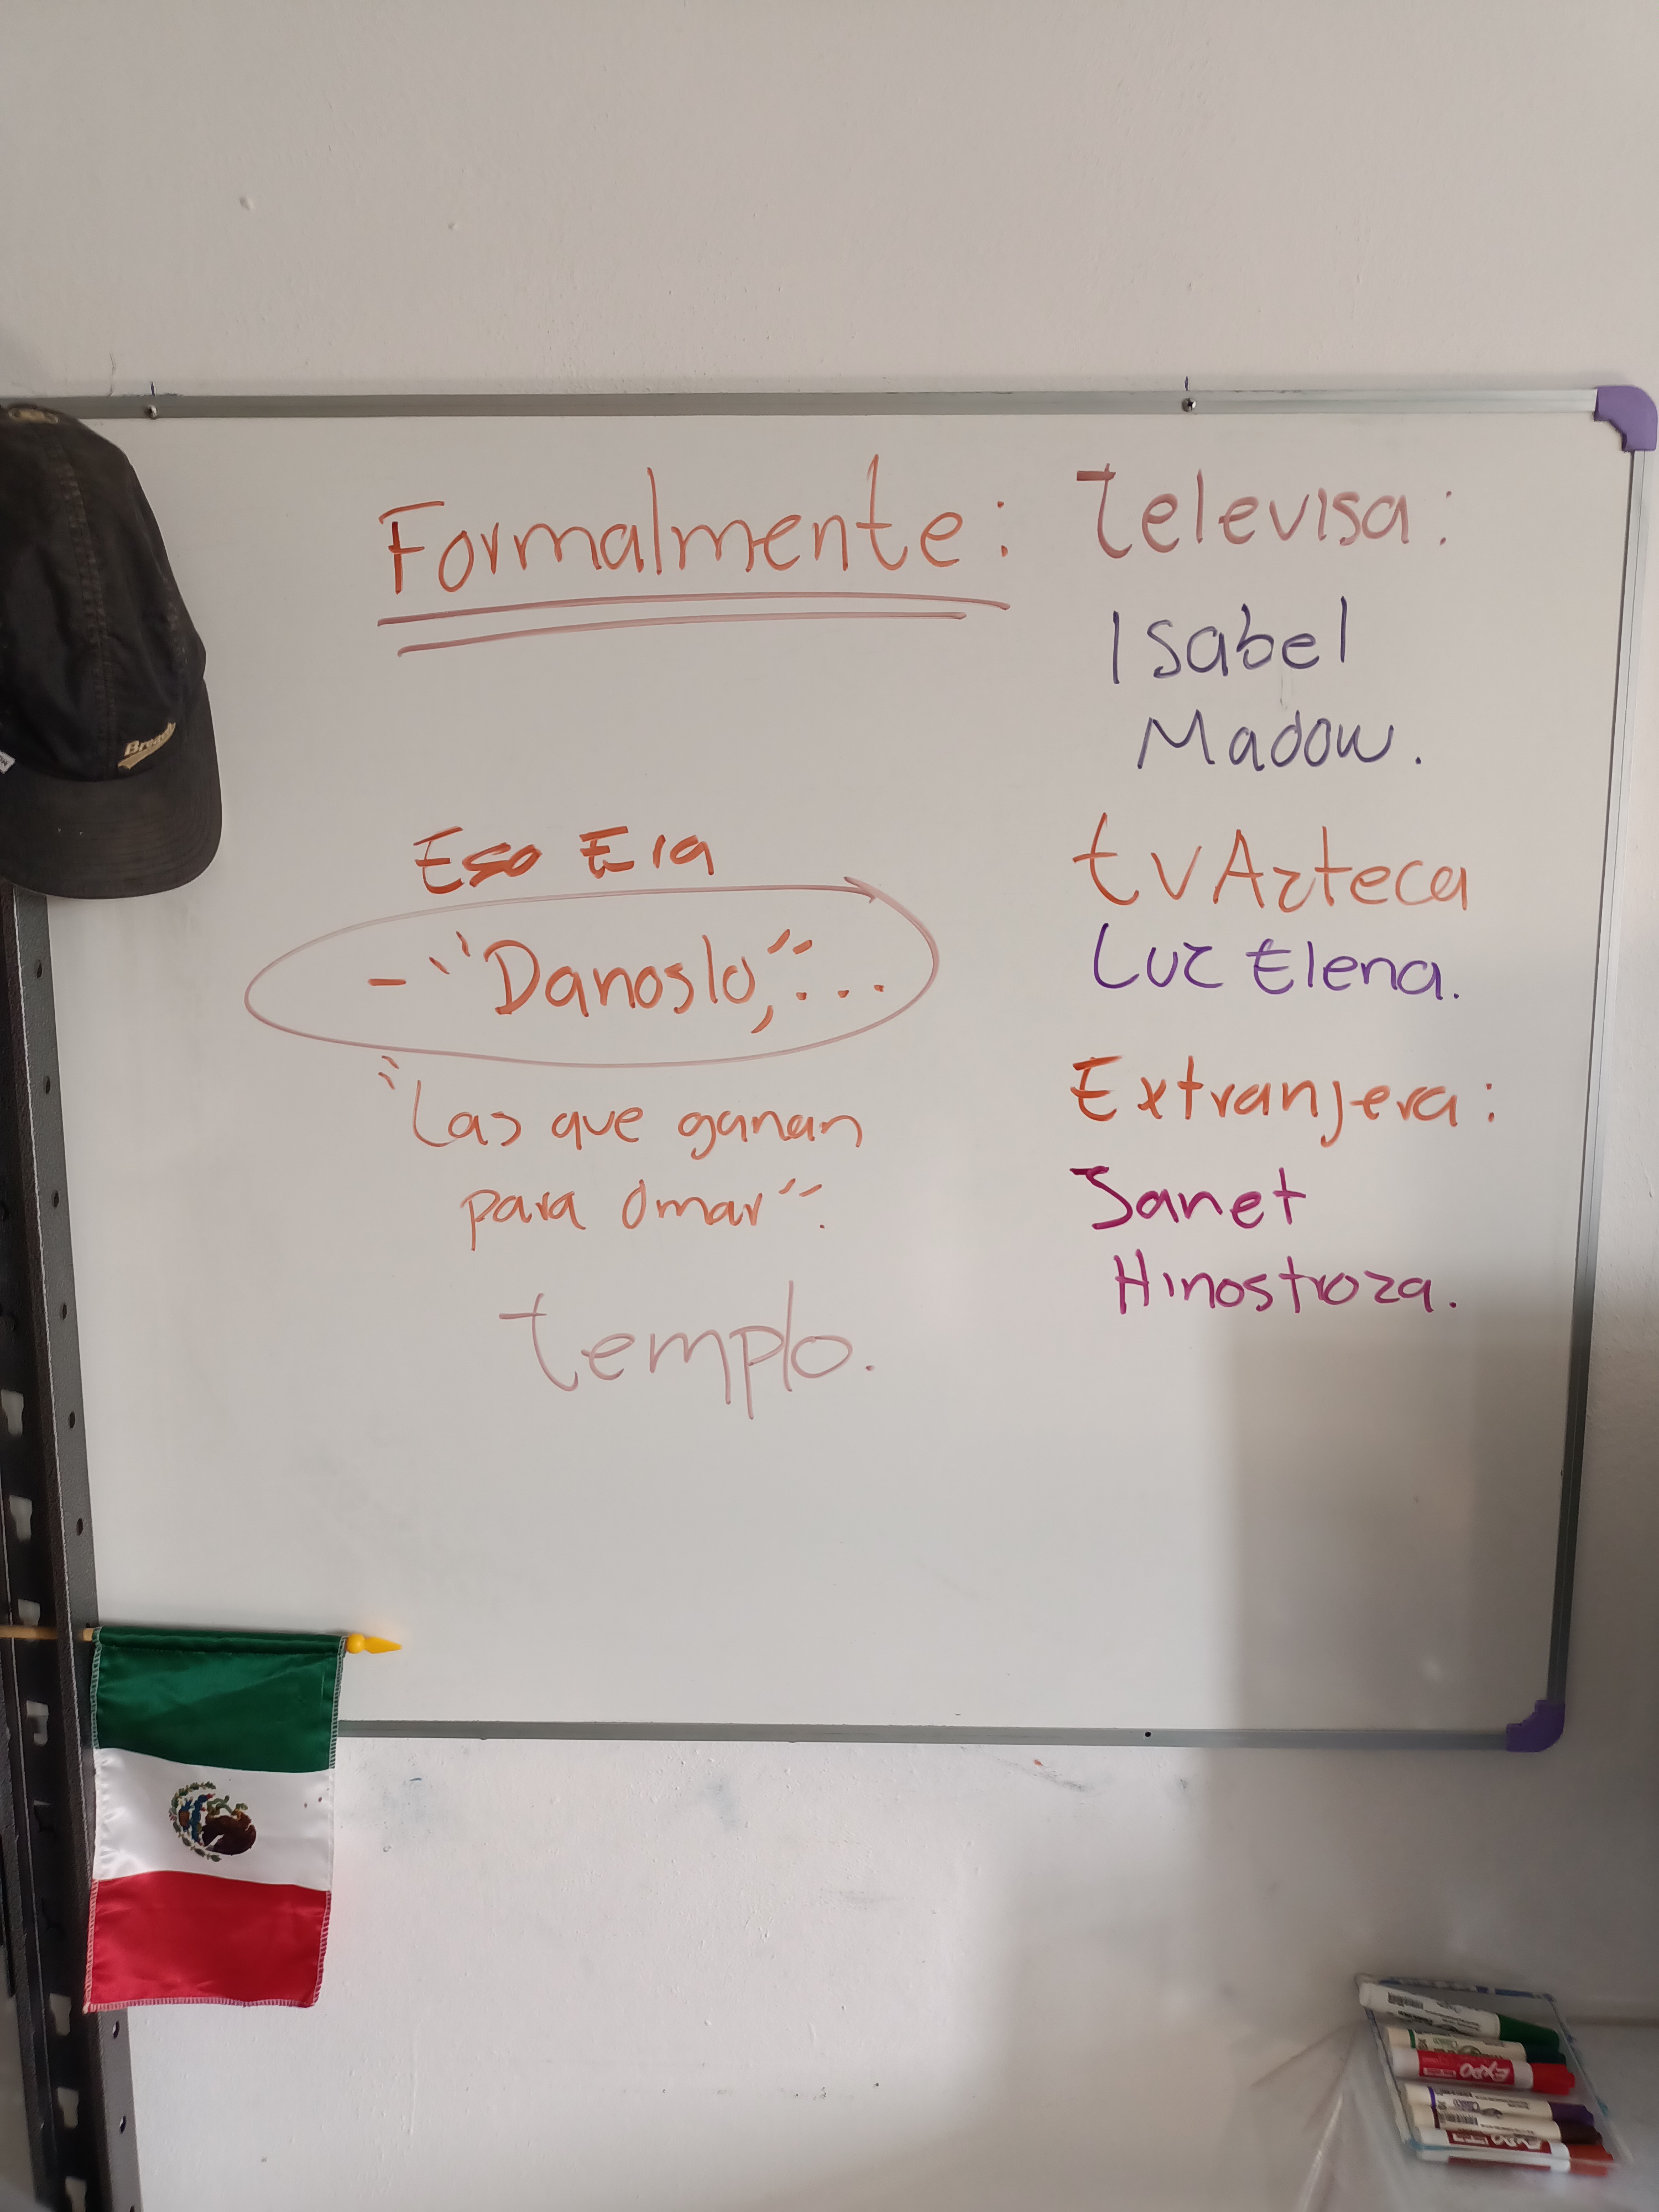 Formalmente:
Eso Era
- "Danoslo,"...
"Las que ganan
para Omar".
templo.
Televisa:
Isabel
Madow.
tv Azteca
Luz Elena.
Extranjera:
Janet
Hinostroza.
EXPO
EXPO